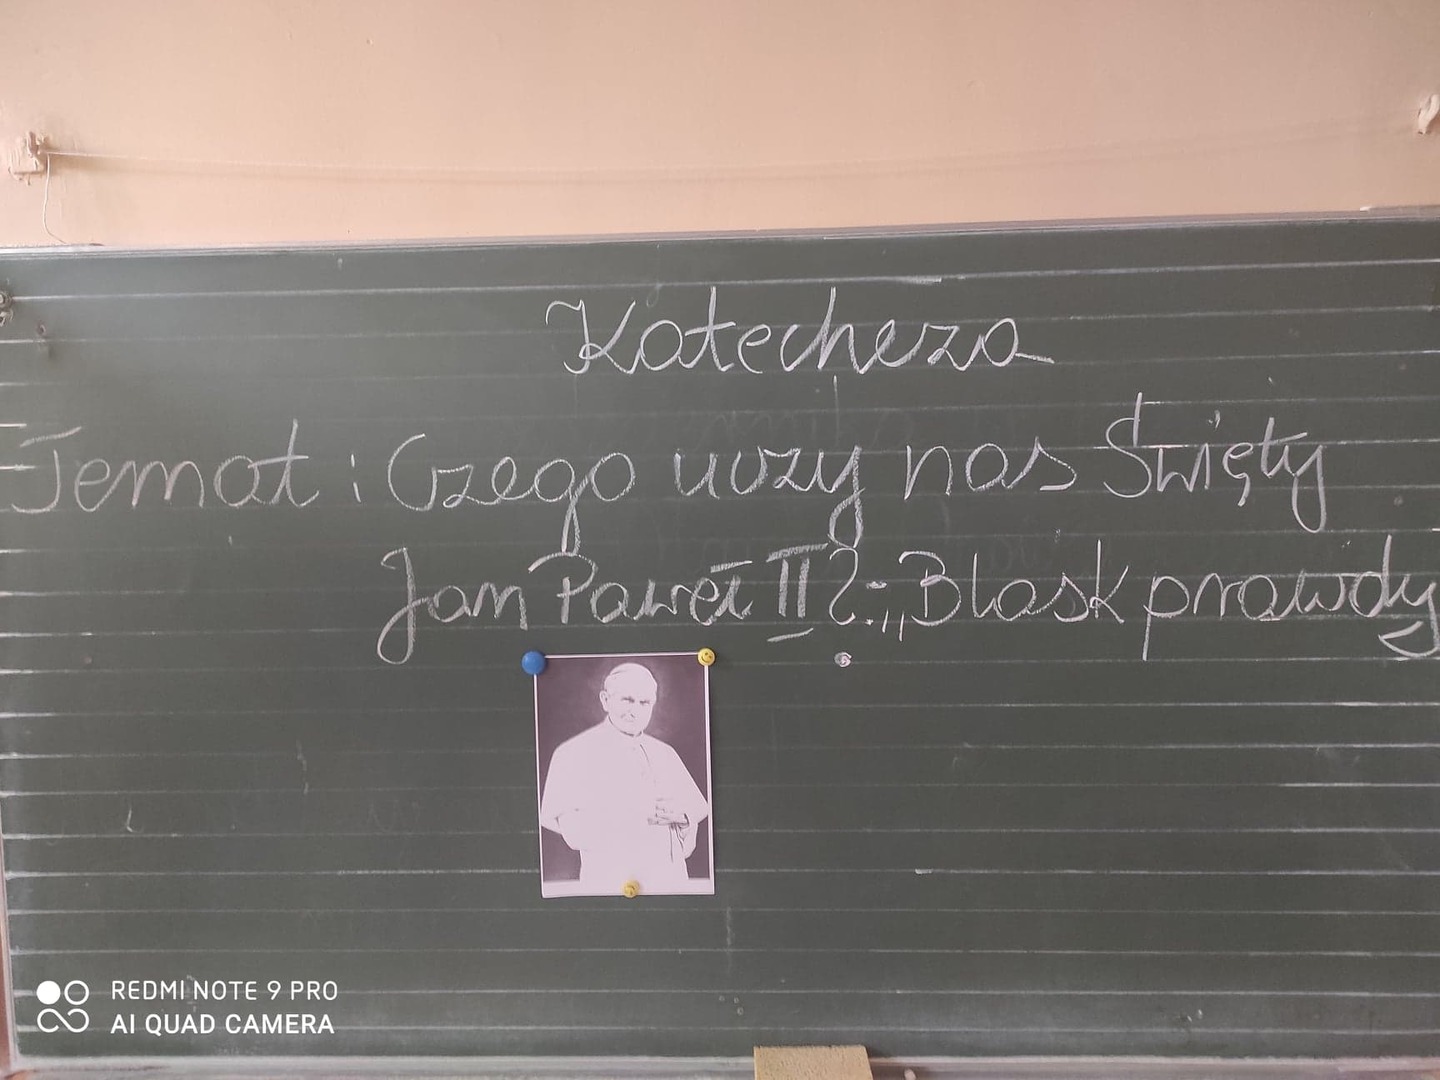 Katecheza
Temat : Czego uczy nas Święty
Jan Paweł II ? : „Blask prawdy
REDMI NOTE 9 PRO
AI QUAD CAMERA